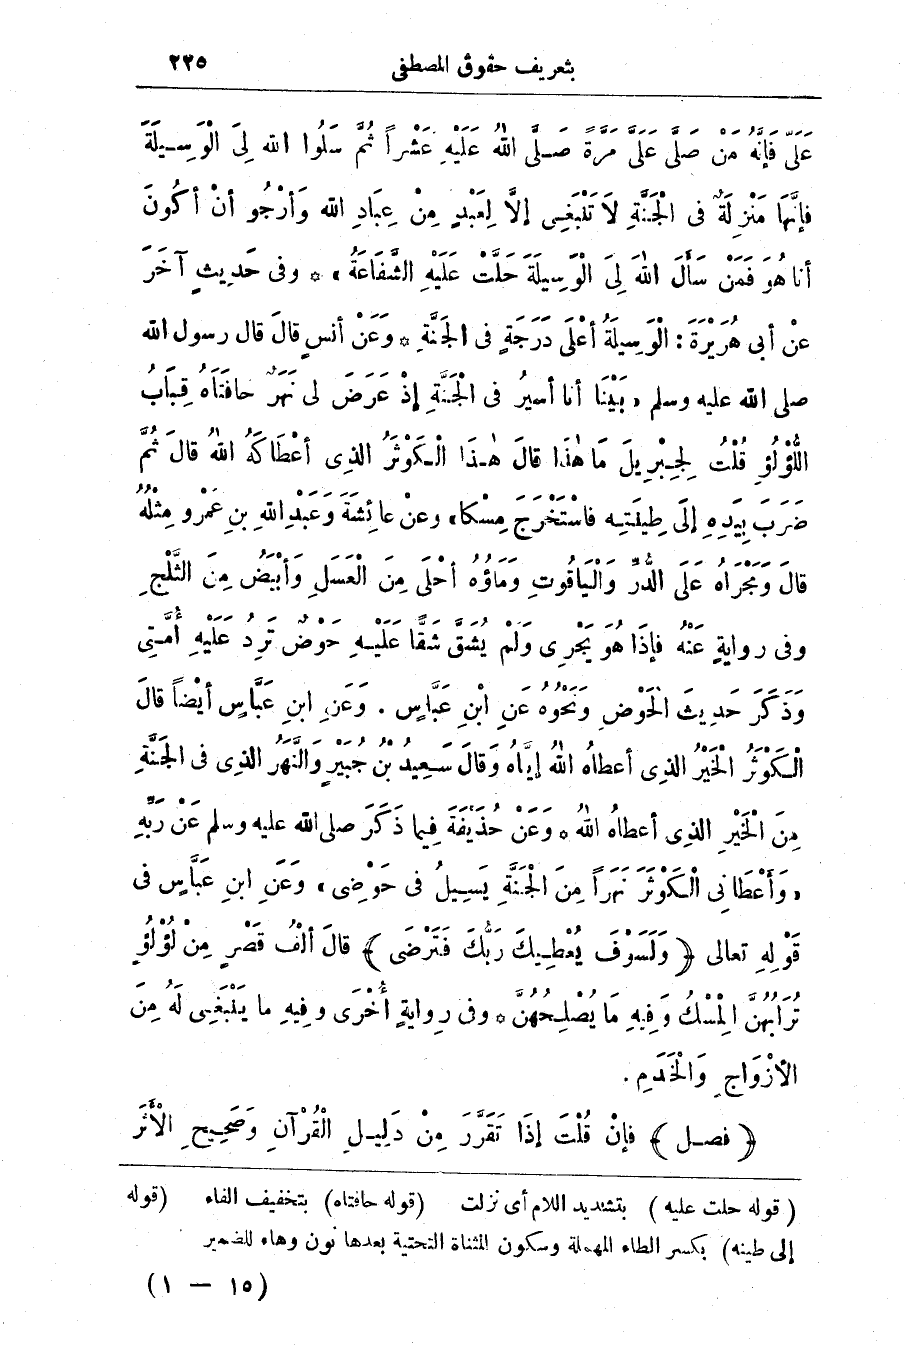 بتعريف حقوق المصطفى ٢٢٥
عَلَىَّ فَإِنَّهُ مَنْ صَلَّى عَلَىَّ مَرَّةً صَلَّى اللهُ عَلَيْهِ عَشْراً ثُمَّ سَلُوا الله لِىَ الْوَسِيلَةَ
فإِنَّهَا مَنْزِلَةٌ فى الْجَنَّةِ لاَ تَنْبَغِى إلاَّ لِعَبْدٍ مِنْ عِبَادِ الله وَأرْجُو أنْ أكُونَ
أنا هُوَ فَمَنْ سَأَلَ اللهَ لِىَ الْوَسِيلَةَ حَلَّتْ عَلَيْهِ الشَّفَاعَةُ » * وفى حَدِيثٍ آخَرَ
عنْ أبى هُرَيْرَةَ : الْوَسِيلَةُ أعْلَى دَرَجَةٍ فى الجَنَّةِ * وَعَنْ أنسٍ قالَ قال رسول الله
صلى الله عليه وسلم « بَيْنَا أنا أسيرُ فى الْجَنَّةِ إذْ عَرَضَ لى نَهَرٌ حافَتَاهُ قِبَابُ
اللُّؤْلُؤِ قُلْتُ لِجِبْرِيلَ مَا هٰذَا قالَ هٰذَا الْكَوْثَرُ الذى أعْطَاكَهُ اللهُ قالَ ثُمَّ
ضَرَبَ بِيَدِهِ إلَى طِينَتِهِ فاسْتَخْرَجَ مِسْكا » وعنْ عائِشَةَ وَعَبْدِ اللهِ بنِ عَمْرو مِثْلُهُ
قالَ وَمَجْرَاهُ عَلَى الدُّرِّ وَالْيَاقُوتِ وَمَاؤُهُ أحْلَى مِنَ الْعَسَلِ وَأبْيَضُ مِنَ الثَّلْجِ
وفى روايةٍ عَنْهُ فإذَا هُوَ يَجْرِى وَلَمْ يُشَقَّ شَقًّا عَلَيْهِ حَوْضٌ تَرِدُ عَلَيْهِ أُمَّتِى
وَذَكَرَ حَدِيثَ الحَوْضِ وَنَحْوُهُ عَنِ ابْنِ عَبَّاسٍ . وَعَنِ ابنِ عَبَّاسٍ أيْضاً قالَ
الْكَوْثَرُ الْخَيْرُ الذى أعطاهُ اللهُ إيَّاهُ وَقالَ سَعِيدُ بْنُ جُبَيْرٍ وَالنَّهَرُ الذى فى الجَنَّةِ
مِنَ الْخَيْرِ الذى أعطاهُ اللهُ * وَعَنْ حُذَيْفَةَ فِيما ذَكَرَ صلى الله عليه وسلم عَنْ رَبِّهِ
« وَأَعْطَانِى الْكَوْثَرَ نَهَراً مِنَ الْجَنَّةِ يَسِيلُ فى حَوْضِى » وَعَنِ ابنِ عَبَّاسٍ فى
قَوْلِهِ تعالى ﴿ وَلَسَوْفَ يُعْطِيكَ رَبُّكَ فَتَرْضَى ﴾ قالَ أَلْفُ قَصْرٍ مِنْ لُؤْلُؤٍ
تُرَابُهُنَّ الْمِسْكُ وَفِيهِ مَا يُصْلِحُهُنَّ * وفى رِوايةٍ أُخْرَى وفِيهِ ما يَنْبَغِى لَهُ مِنَ
الأزْوَاجِ وَالْخَدَمِ .
﴿ فصل ﴾ فإنْ قُلْتَ إذَا تَقَرَّرَ مِنْ دَلِيلِ الْقُرْآنِ وَصَحِيحِ الْأَثَرِ
( قوله حلت عليه ) بتشديد اللام أى نزلت (قوله حافتاه) بتخفيف الفاء (قوله
إلى طينه) بكسر الطاء المهملة وسكون المثناة التحتية بعدها نون وهاء للضمير
(١٥ — ١)